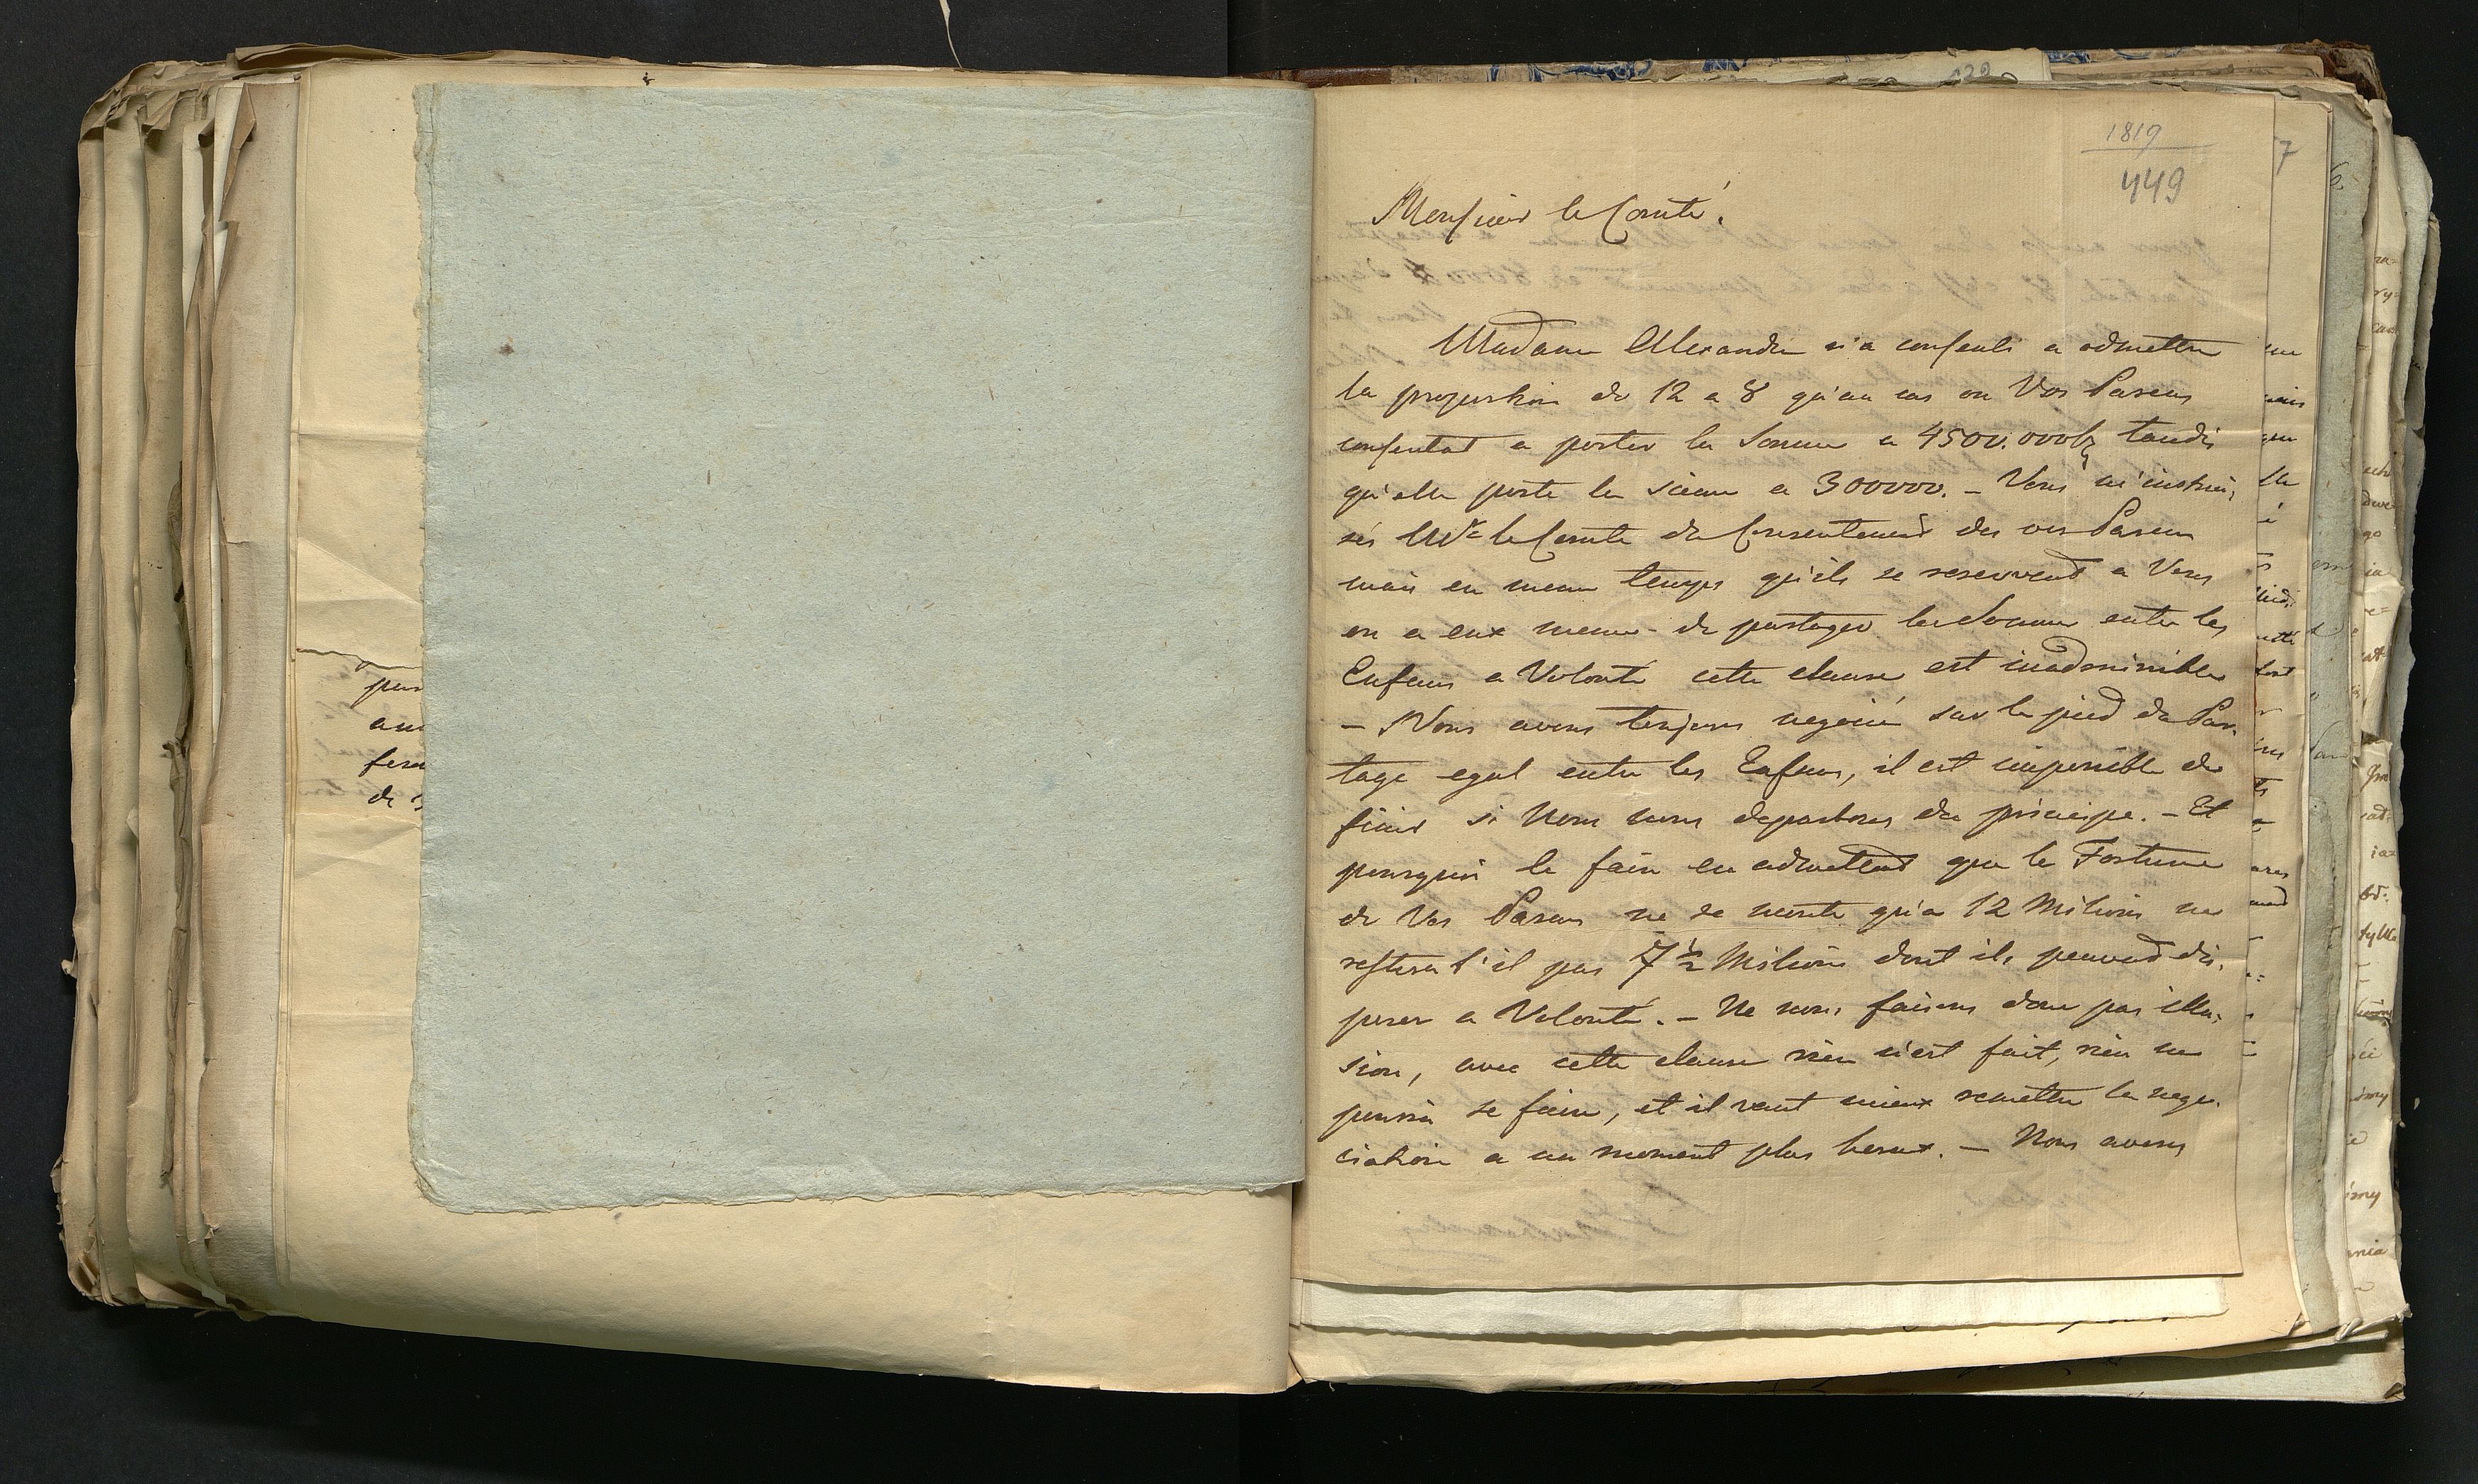 1819
449
Monsieur le Comte.
Madame Alexandre n'a consenti a admettre
la proportion de 12 a 8 qu'au cas ou Vos Parens
consentent a porter la Somme a 4500.000 tandis
qu'elle porte la sienne a 300000. – Vous m'instrui,
sés Mr le Comte du Consentement des vos Parens
mais en meme temps qu'ils se reservent a Vous
ou a eux meme de partager la Somme entre les
Enfans a Volonté cette clause est inadmissible
– Nous avons toujours negocié sur le pied du Par,
tage egal entre les Enfans, il est impossible de
finir si Nous nous departons du principe. – Et
pourquoi le faire en admettant que la Fortune
de Vos Parens ne se monte qu'a 12 Milions ne
restera t'il pas 7 ½ Milions dont ils peuvent dis,
poser a Volonté. – Ne nous faisons donc pas illu,
sion, avec cette clause rien n'est fait, rien ne
pourra se faire, et il vaut mieux remettre la nego,
ciation a un moment plus heureux. – Nous avons
per
au
fera
de